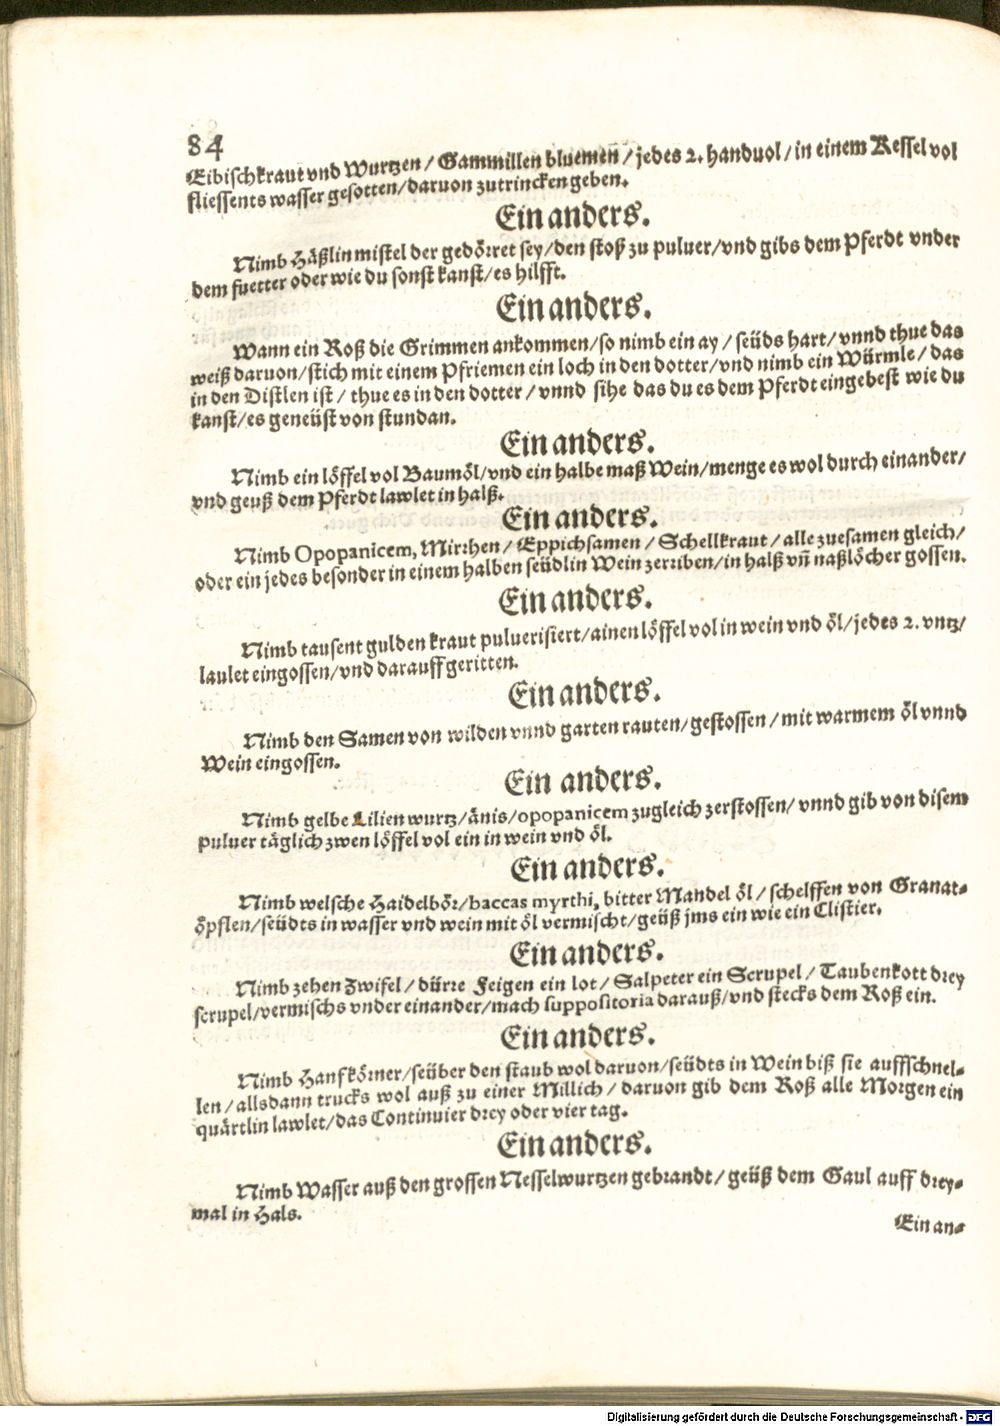 84
Eibischkraut vnd Wurtzen / Gammillen bluemen̄ / jedes 2. handuol / in einem Kessel vol
fliessents wasser gesotten / daruon zutrincken geben.
Ein anders.
Nimb Häßlin mistel der gedörret sey / den stoß zu puluer / vnd gibs dem Pferdt vnder
dem fuetter oder wie du sonst kanst / es hilfft.
Ein anders.
Wann ein Roß die Grimmen ankommen / so nimb ein ay / seüds hart / vnnd thue das
weiß daruon / stich mit einem Pfriemen ein loch in den dotter / vnd nimb ein Würmle / das
in den Distlen ist / thue es in den dotter / vnnd sihe das du es dem Pferdt eingebest wie du
kanst / es geneüst von stundan.
Ein anders.
Nimb ein löffel vol Baumöl / vnd ein halbe maß Wein / menge es wol durch einander /
vnd geuß dem Pferdt lawlet in halß.
Ein anders.
Nimb Opopanicem, Mirrhen / Eppichsamen / Schellkraut / alle zuesamen gleich /
oder ein jedes besonder in einem halben seüdlin Wein zerriben / in halß vn̄ naßlöcher gossen.
Ein anders.
Nimb tausent gulden kraut puluerisiert / ainen löffel vol in wein vnd öl / jedes 2. vntz /
laulet eingossen / vnd darauff geritten.
Ein anders.
Nimb den Samen von wilden vnnd garten rauten / gestossen / mit warmem öl vnnd
Wein eingossen.
Ein anders.
Nimb gelbe Lilien wurtz / änis / opopanicem zugleich zerstossen / vnnd gib von disem
puluer täglich zwen löffel vol ein in wein vnd öl.
Ein anders.
Nimb welsche Haidelbör / baccas myrthi, bitter Mandel öl / schelffen von Granat-
öpflen / seüdts in wasser vnd wein mit öl vermischt / geüß jms ein wie ein Clistier.
Ein anders.
Nimb zehen Zwifel / dürre Feigen ein lot / Salpeter ein Scrupel / Taubenkott drey
scrupel / vermischs vnder einander / mach suppositoria darauß / vnd stecks dem Roß ein.
Ein anders.
Nimb Hanfkörner / seüber den staub wol daruon / seüdts in Wein biß sie auffschnel-
len / allsdann trucks wol auß zu einer Millich / daruon gib dem Roß alle Morgen ein
quärtlin lawlet / das Continuier drey oder vier tag.
Ein anders.
Nimb Wasser auß den grossen Nesselwurtzen gebrandt / geüß dem Gaul auff drey-
mal in Hals.
Ein an-
Digitalisierung gefördert durch die Deutsche Forschungsgemeinschaft - DFG